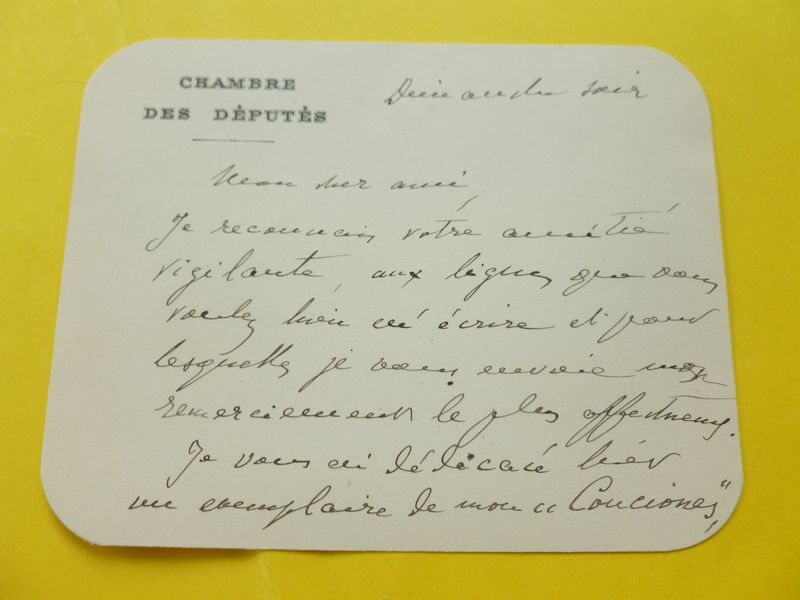 CHAMBRE
DES DÉPUTÉS
Dimanche soir
Mon cher ami,
Je reconnais votre amitié
vigilante, aux lignes que vous
voulez bien m'écrire et pour
lesquelles je vous envoie mes
remerciements le plus affectueux.
Je vous ai dédicacé hier
un exemplaire de mon « Conciones »,